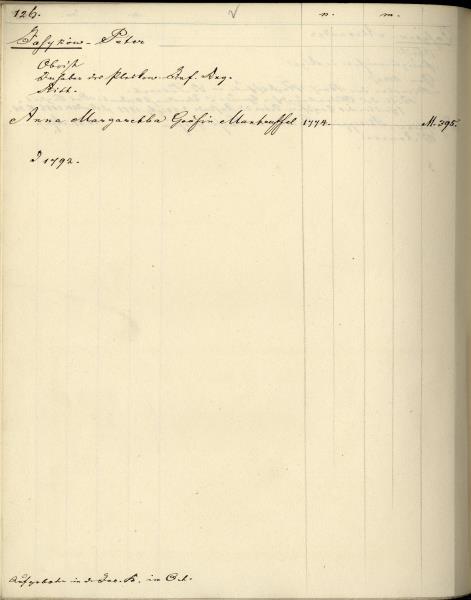 126. n. m.
Jasykow Peter
Obrist
Inhaber des Pleskow. Inf. Reg.
Ritt.
Anna Margaretha Gräfin Manteuffel 1774. M. 395.
† 1792.
Aufgeboten in d. Jac. K. in